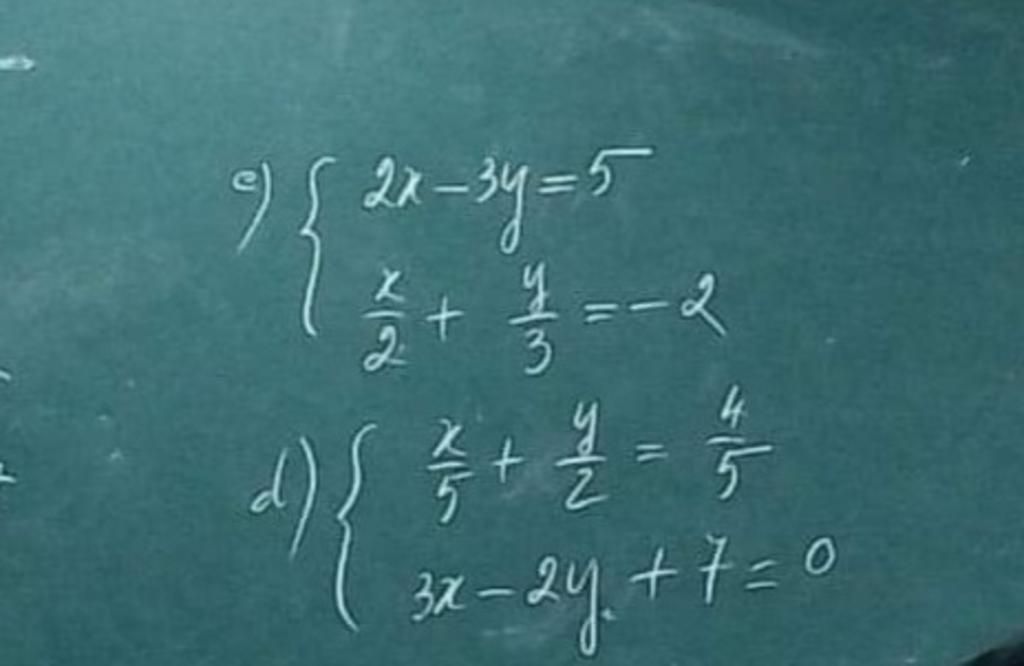 c) { 2x - 3y = 5
x/2 + y/3 = -2
d) { x/5 + y/2 = 4/5
3x - 2y + 7 = 0